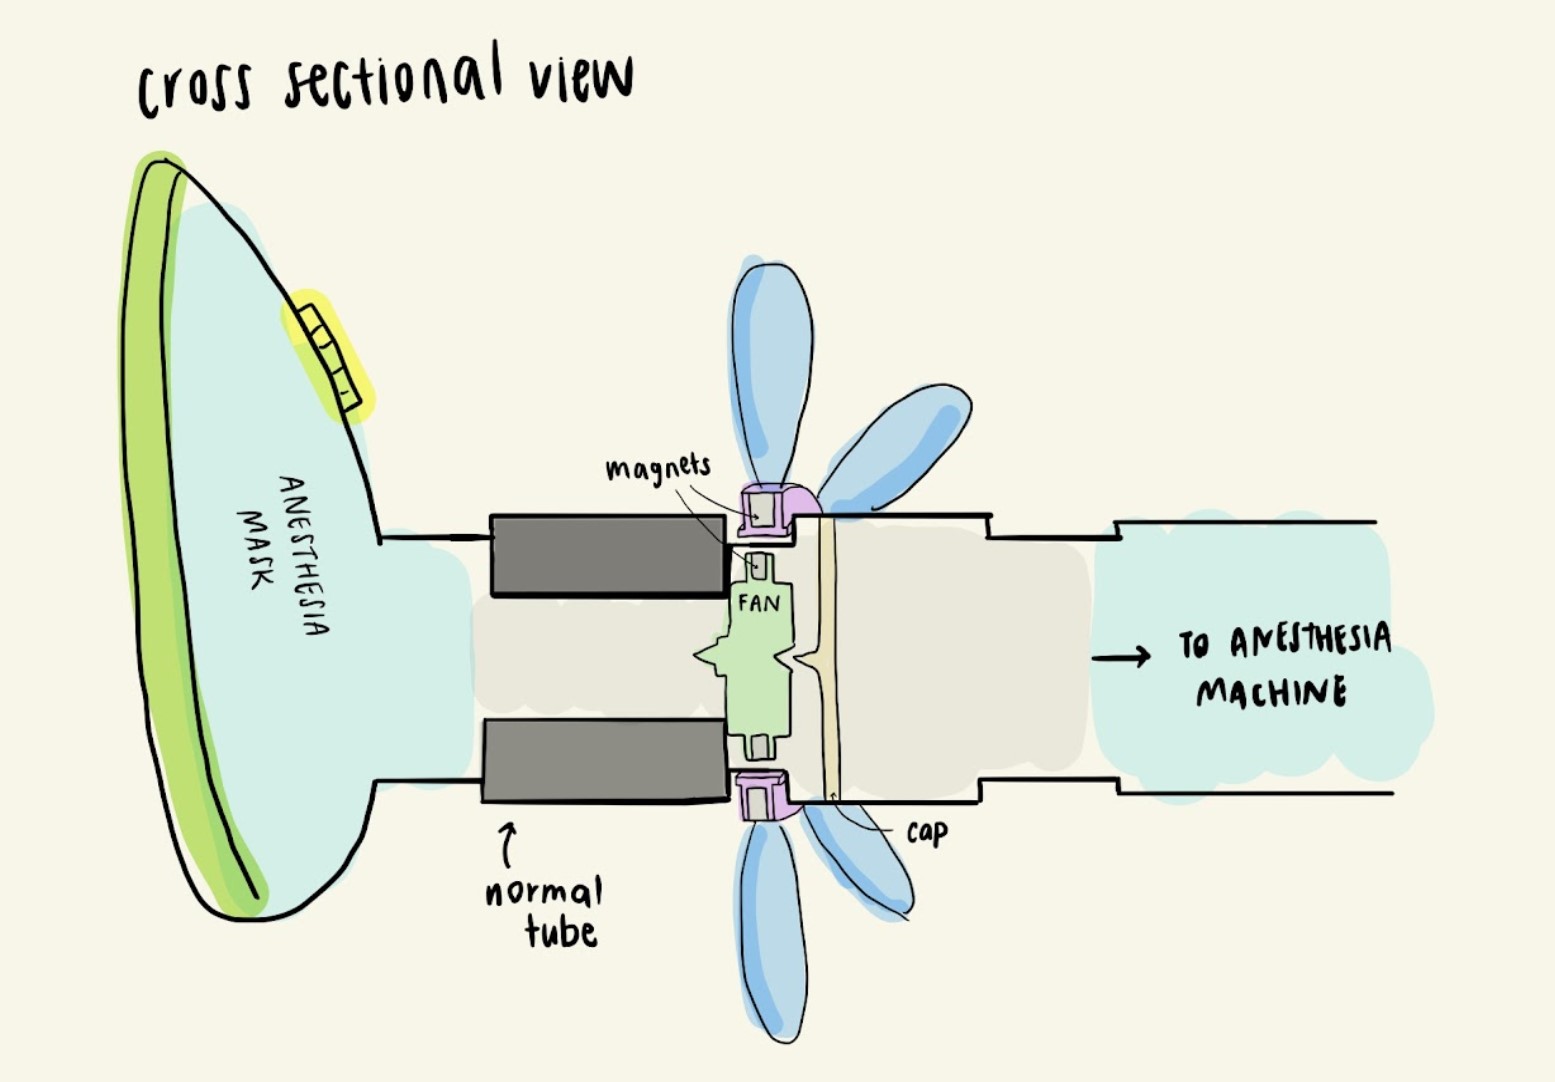 cross sectional view
magnets
ANESTHESIA
MASK
FAN
TO ANESTHESIA
MACHINE
cap
normal
tube